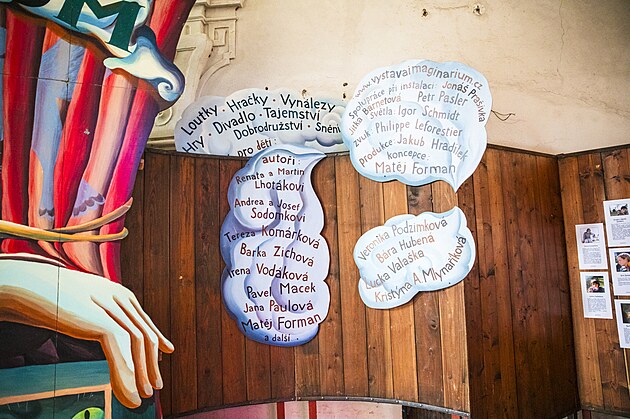 M
Loutky · Hračky · Vynálezy
Hry · Divadlo · Tajemství
Dobrodružství · Snění
pro děti
autoři:
Renata a Martin
Lhotákovi
Andrea a Josef
Sodomkovi
Tereza Komárková
Barka Zichová
Irena Vodáková
Pavel Macek
Jana Paulová
Matěj Forman
a další
www.vystavaimaginarium.cz
Spolupráce při instalaci: Jonáš Prašivka
Jitka Bärnetová Petr Pašler
Světla: Igor Schmidt
zvuk: Philippe Leforestier
Produkce: Jakub Hradilek
koncepce:
Matěj Forman
Veronika Podzimková
Bára Hubená
Lucka Valaška
Kristýna A. Mlynaříková